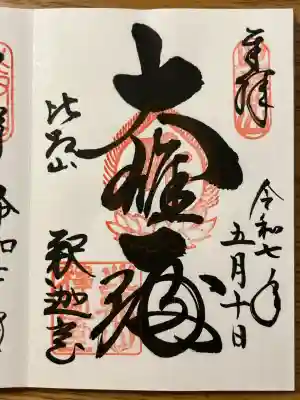 奉拝
令和七年
五月十日
大雄殿
比叡山
釈迦堂